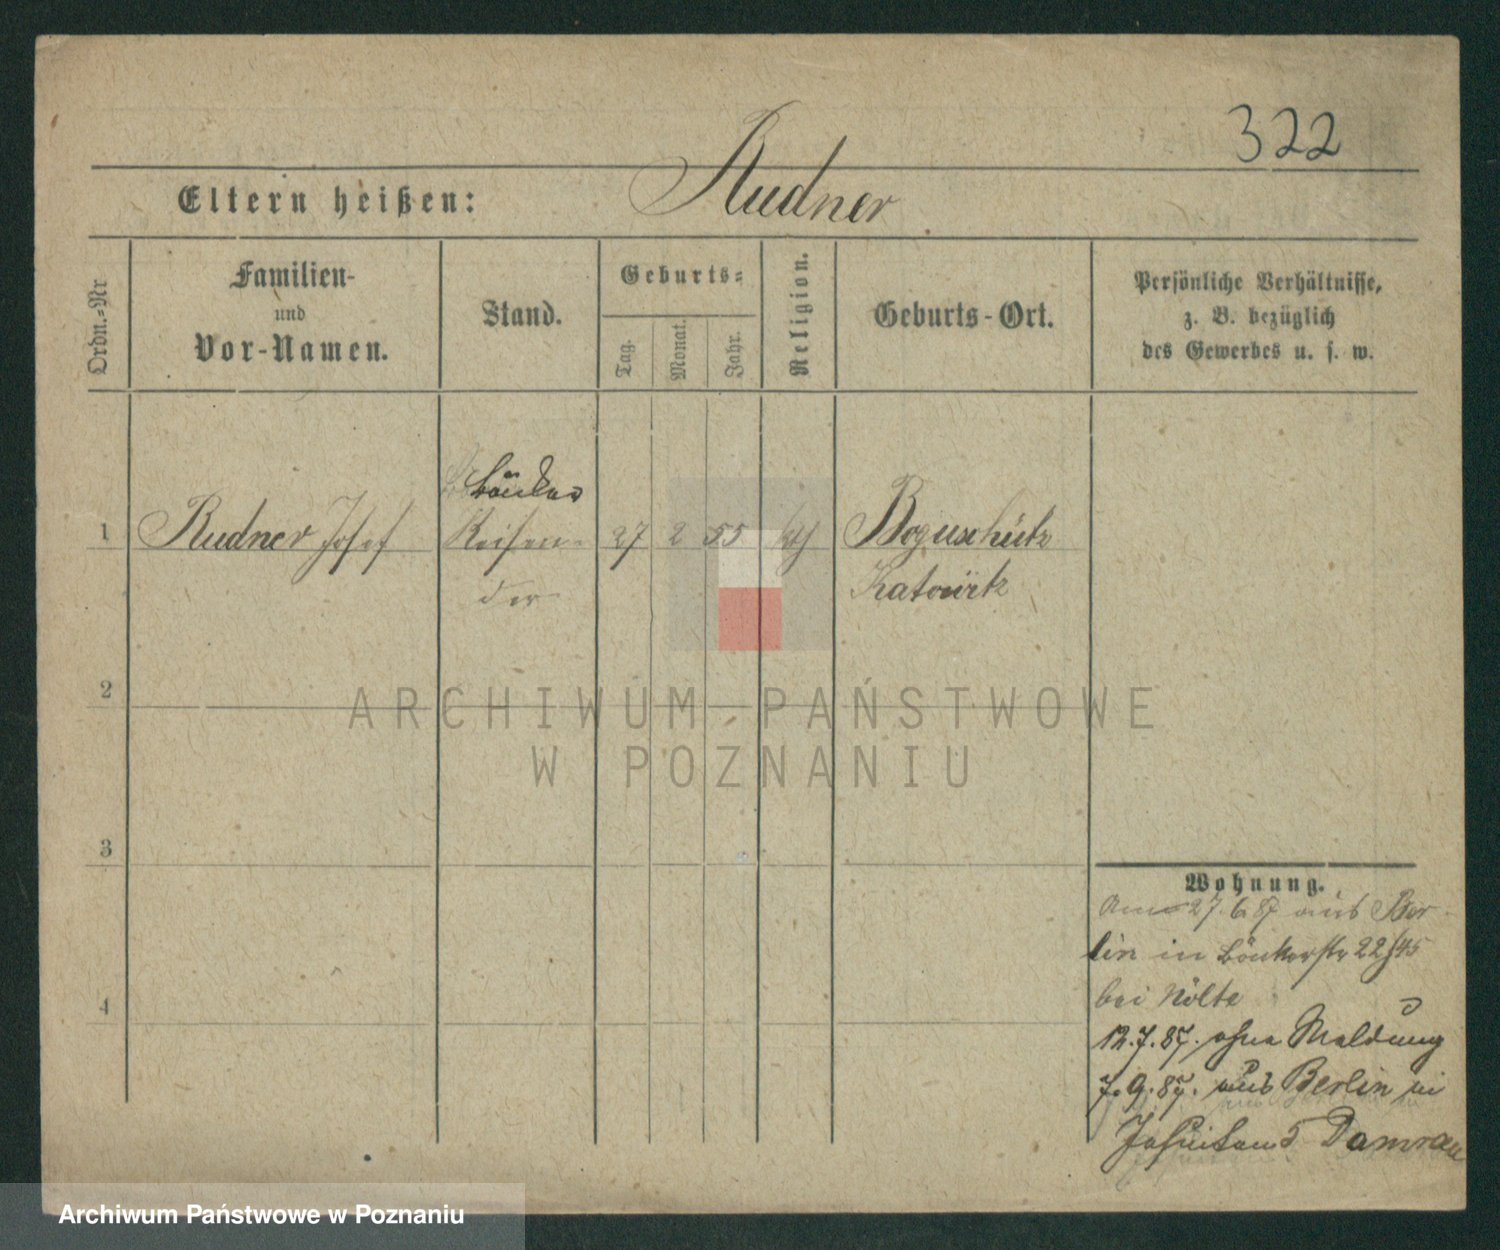 322
Eltern heißen: Rudner
Ordn.-Nr
Familien-
und
Vor-Namen.
Stand.
Geburts-
Tag.
Monat.
Jahr.
Religion.
Geburts-Ort.
Persönliche Verhältnisse,
z. B. bezüglich
des Gewerbes u. s. w.
1 Rudner Josef
Reisen-
der
27 2 55
Boguschütz
Katowitz
2
3
4
ARCHIWUM PAŃSTWOWE
W POZNANIU
Wohnung.
27.6.87 aus Ber-
lin in Bäckerstr 22/45
bei Nölte
12.7.87. ohne Meldung
7.9.87. aus Berlin in
Jesuiten 5 Damrau
Archiwum Państwowe w Poznaniu